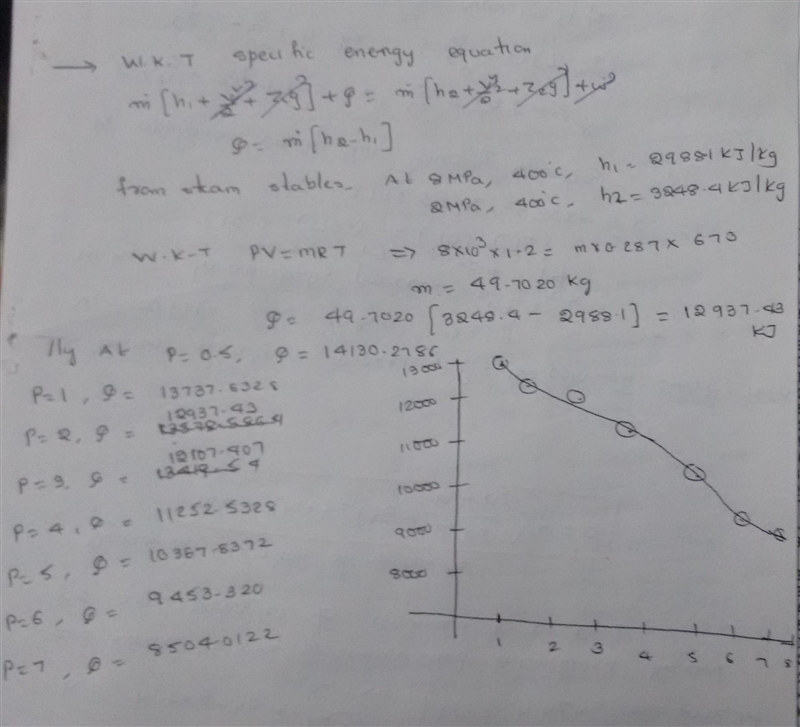 → W.K.T specific energy equation
ṁ [h₁ + V²/2 + Z₁g] + Q = ṁ [h2 + V²/2 + Z2g] + w⁰
Q = ṁ [h2 - h₁]
from steam stables. At 8MPa, 400°C, h₁ = 29881 KJ/kg
2MPa, 400°C, h2 = 3248.4 KJ/kg
W.K.T PV = MRT => 8×10³×1.2 = m×0.287×673
m = 49.7020 kg
Q = 49.7020 [3248.4 - 2988.1] = 12937.43 KJ
lly At P=0.5, Q = 14130.2786
P=1, Q = 13737.6328
P=2, Q = 12937.43
P=3, Q = 12107.407
P=4, Q = 11252.5328
P=5, Q = 10367.8372
P=6, Q = 9453.320
P=7, Q = 8504.0122
13000
12000
11000
10000
9000
8000
1 2 3 4 5 6 7 8